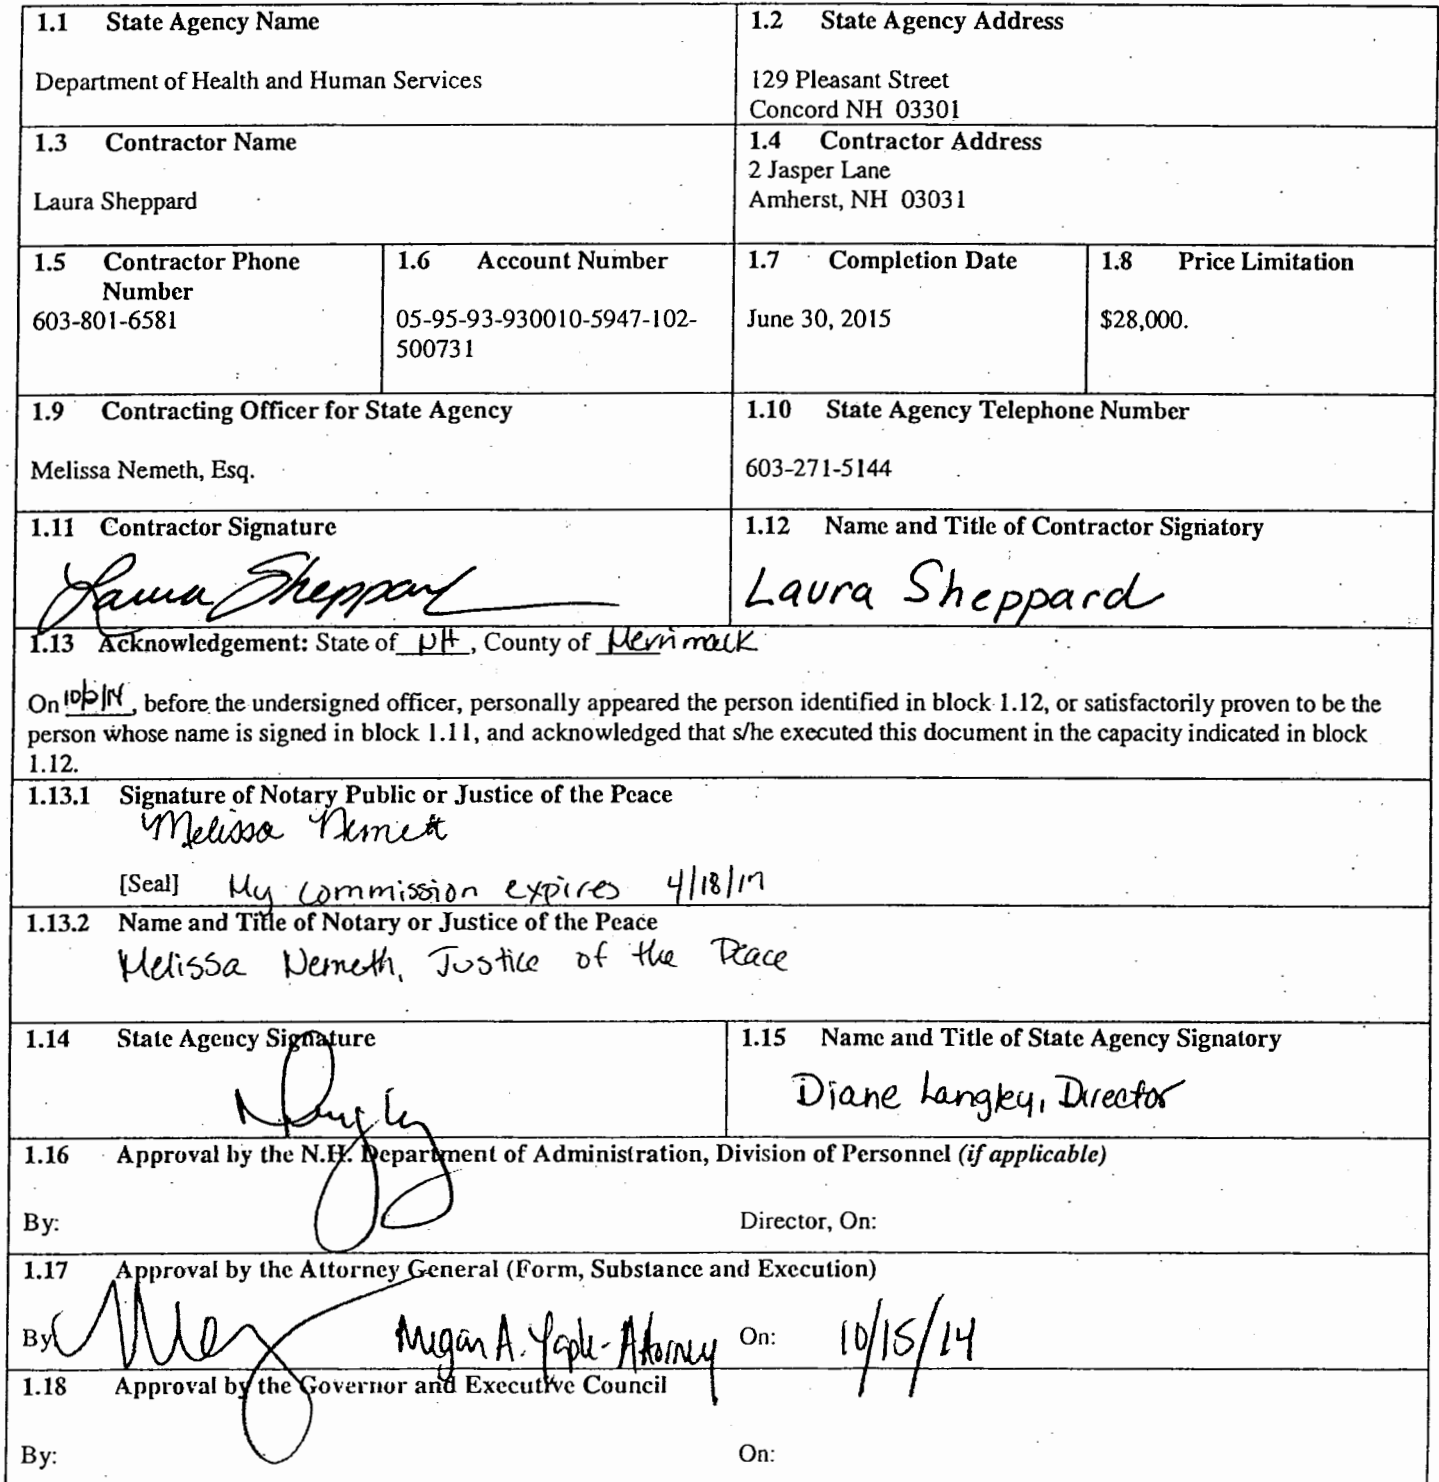 1.1 State Agency Name
Department of Health and Human Services
1.2 State Agency Address
129 Pleasant Street
Concord NH 03301
1.3 Contractor Name
Laura Sheppard
1.4 Contractor Address
2 Jasper Lane
Amherst, NH 03031
1.5 Contractor Phone
Number
603-801-6581
1.6 Account Number
05-95-93-930010-5947-102-
500731
1.7 Completion Date
June 30, 2015
1.8 Price Limitation
$28,000.
1.9 Contracting Officer for State Agency
Melissa Nemeth, Esq.
1.10 State Agency Telephone Number
603-271-5144
1.11 Contractor Signature
Laura Sheppard
1.12 Name and Title of Contractor Signatory
Laura Sheppard
1.13 Acknowledgement: State of NH, County of Merrimack
On , before the undersigned officer, personally appeared the person identified in block 1.12, or satisfactorily proven to be the
person whose name is signed in block 1.11, and acknowledged that s/he executed this document in the capacity indicated in block
1.12.
1.13.1 Signature of Notary Public or Justice of the Peace
Melissa Nemeth
[Seal] My commission expires 4/18/17
1.13.2 Name and Title of Notary or Justice of the Peace
Melissa Nemeth, Justice of the Peace
1.14 State Agency Signature
1.15 Name and Title of State Agency Signatory
Diane Langley, Director
1.16 Approval by the N.H. Department of Administration, Division of Personnel (if applicable)
By: Director, On:
1.17 Approval by the Attorney General (Form, Substance and Execution)
By: Megan A. Yaple - Attorney On: 10/15/14
1.18 Approval by the Governor and Executive Council
By: On: